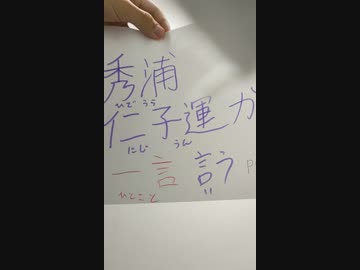 秀浦
ひで うら
仁子運が
にじ うん
一言 言う
ひとこと